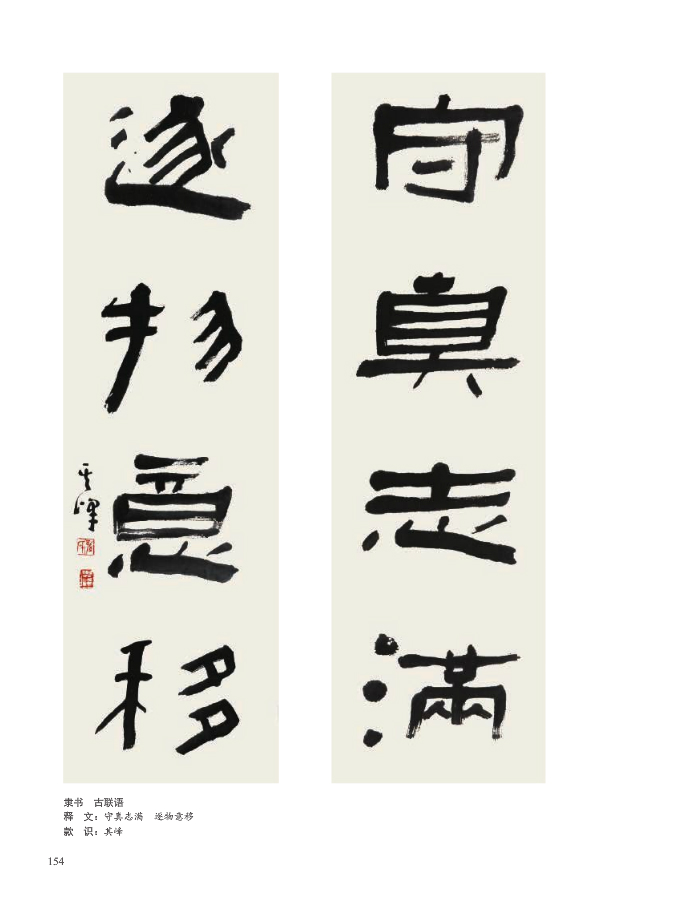 守真志滿
逐物意移
其峰
隶书　古联语
释　文：守真志满　逐物意移
款　识：其峰
154